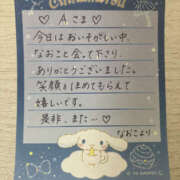 Cinnamoroll
♡ Aさま ♡
今日はおいそがしい中、
なおこと会って下さり
ありがとうございました。
笑顔をほめてもらえて
嬉しいです。
是非、また…♡
なおこより